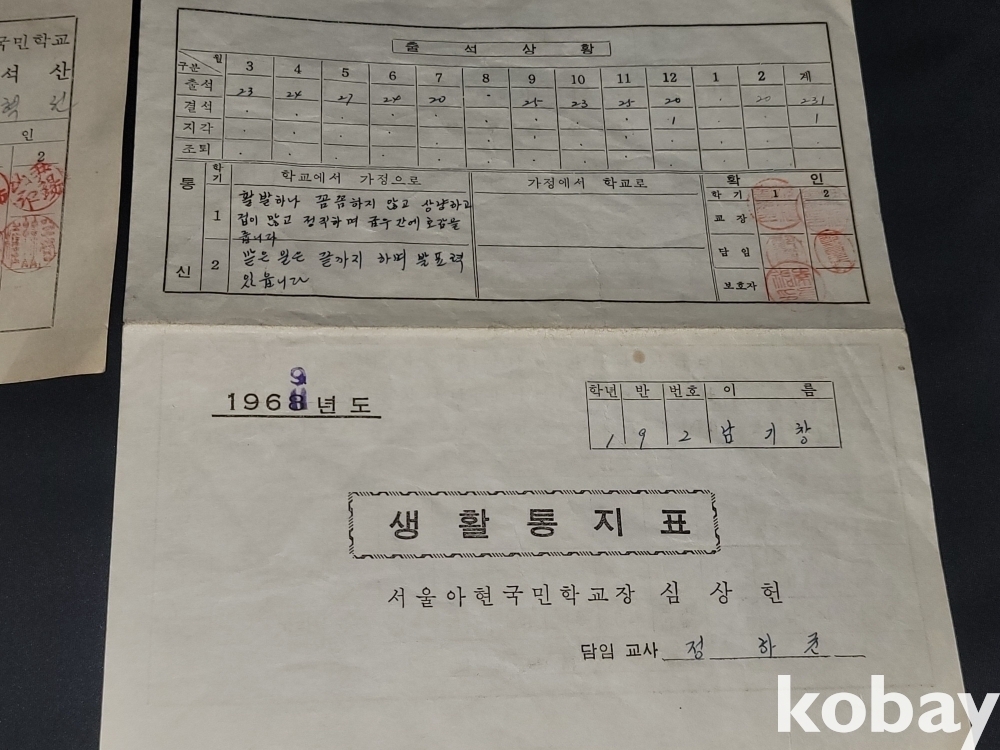 국민학교
석 산
인
2
출 석 상 황
구분 월 3 4 5 6 7 8 9 10 11 12 1 2 계
출석 23 24 27 24 20 · 25 23 25 20 · 20 231
결석 · · · · · · · · 1 · · 1
지각 · · · · · · · · · · ·
조퇴 · · · · · · · · · · ·
통 신
학기 학교에서 가정으로 가정에서 학교로
1 활발하나 꼼꼼하지 않고 상냥하고
겁이 많고 정직하며 급우간에 호감을
줍니다
2 맡은 일은 끝까지 하며 발표력
있읍니다
확 인
학 기 1 2
교 장
담 임
보호자
1969년도
학년 반 번호 이 름
1 9 2 남 기 창
생활통지표
서울아현국민학교장 심 상 헌
담임 교사 정 하
kobay